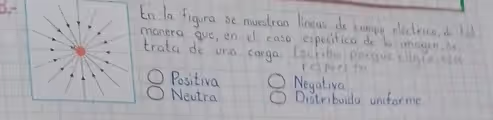 En la figura se muestran líneas de campo eléctrico, de tal
manera que, en el caso específico de la imagen, se
trata de una carga. Escriba porque eligió esa
respuesta
Positiva Negativa
Neutra Distribuida uniforme